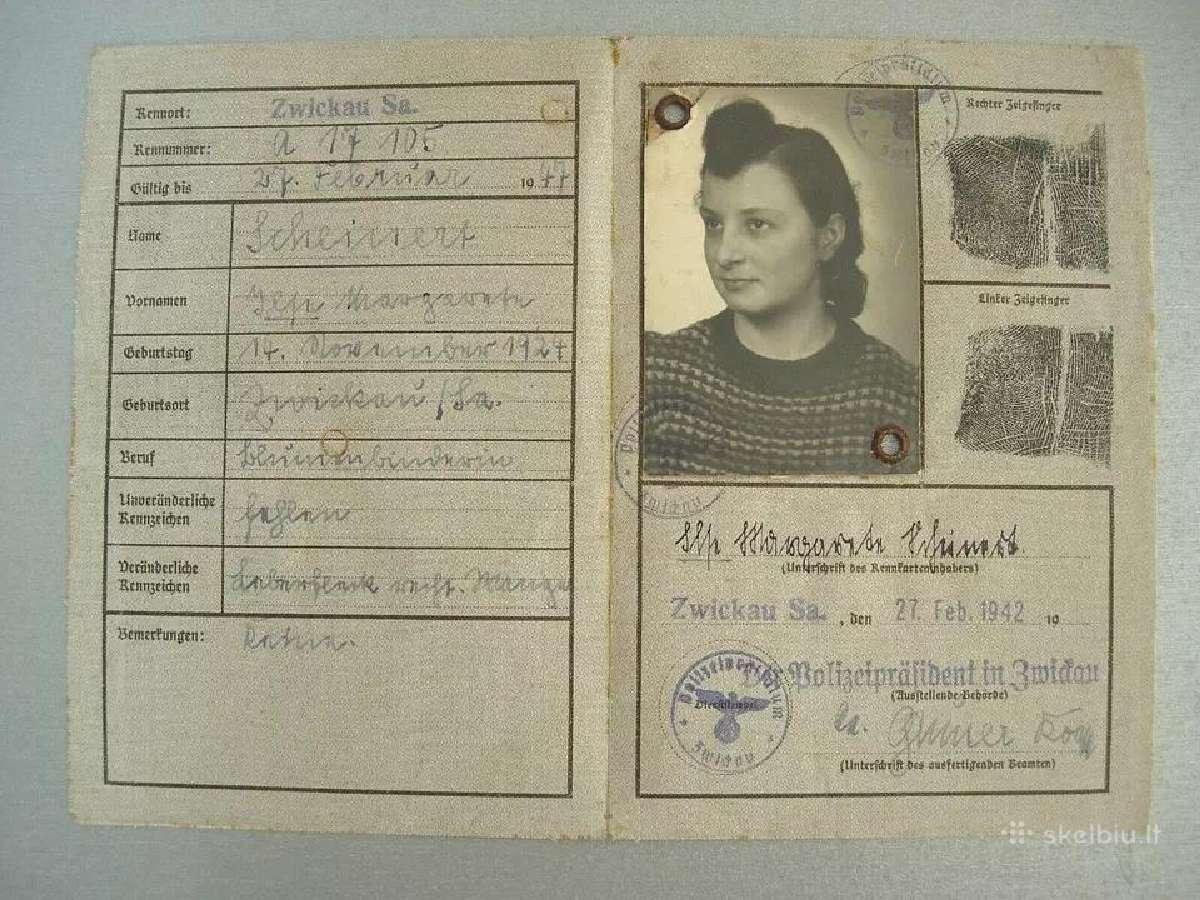 Kennort: Zwickau Sa.
Kennummer: A 17 105
Gültig bis 27. Februar 1947
Name Scheinert
Vornamen Ilse Margarete
Geburtstag 14. November 1924
Geburtsort Zwickau/Sa.
Beruf Blumenbinderin
Unveränderliche
Kennzeichen fehlen
Veränderliche
Kennzeichen Leberfleck recht. Wange
Bemerkungen: Keine.
Polizeipräsidium
Zwickau
Rechter Zeigefinger
Linker Zeigefinger
Ilse Margarete Scheinert.
(Unterschrift des Kennkarteninhabers)
Zwickau Sa., den 27. Feb. 1942 19
Der Polizeipräsident in Zwickau
(Ausstellende Behörde)
Polizeipräsidium
Dienstsiegel
Zwickau
(Unterschrift des ausfertigenden Beamten)
skelbiu.lt